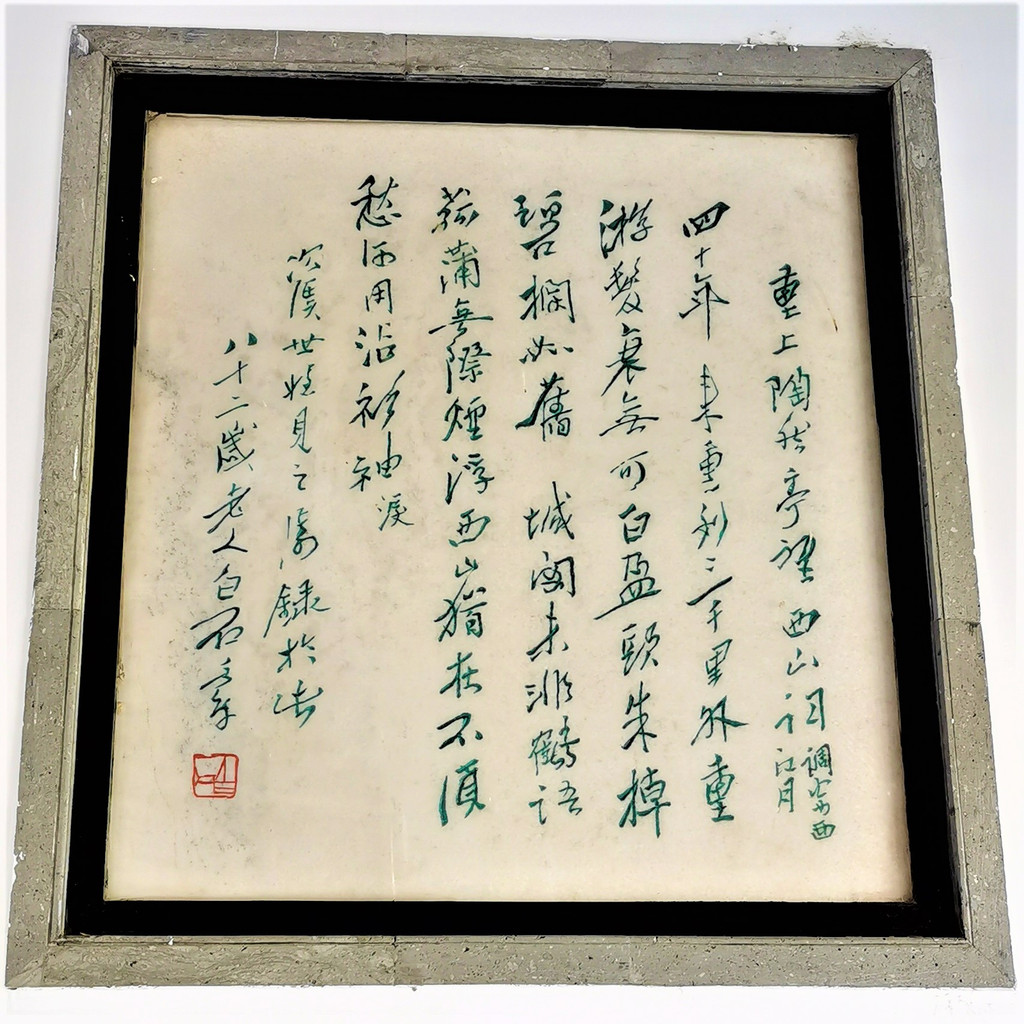 重上陶然亭望西山詞調寄西江月
四十年來重到三千里外重
游髮衰無可白盈頭朱棹
碧欄如舊城闕未非鶴語
菰蒲無際煙浮西山猶在不須
愁何用沾衫袖淚
次溪世姪見之屬錄於此
八十二歲老人白石